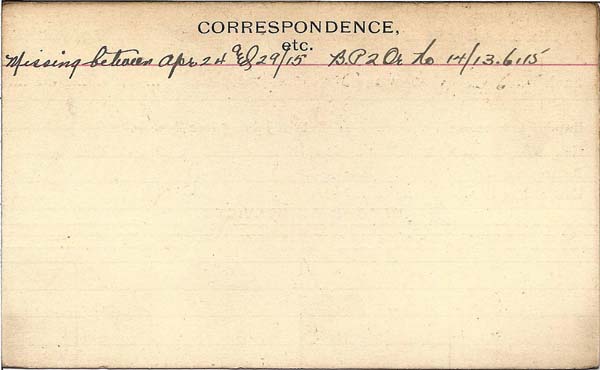 CORRESPONDENCE,
etc.
Missing between Apr 24 & 29/15 B.P2 Or No 14/13.6.15